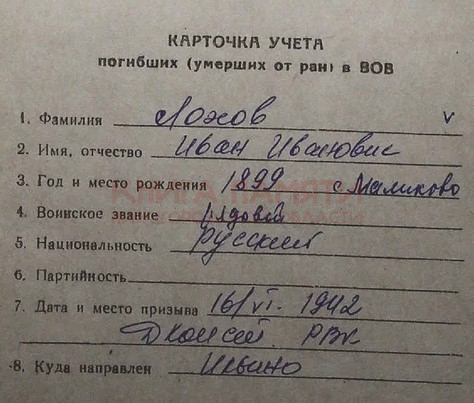 КАРТОЧКА УЧЕТА
погибших (умерших от ран) в ВОВ
1. Фамилия Лохов v
2. Имя, отчество Иван Иванович
3. Год и место рождения 1899 с. Маликово
КНИГА ПАМЯТИ
4. Воинское звание рядовой
ОБЛАСТИ
5. Национальность русский
6. Партийность
7. Дата и место призыва 16/VI. 1942
РВК
8. Куда направлен